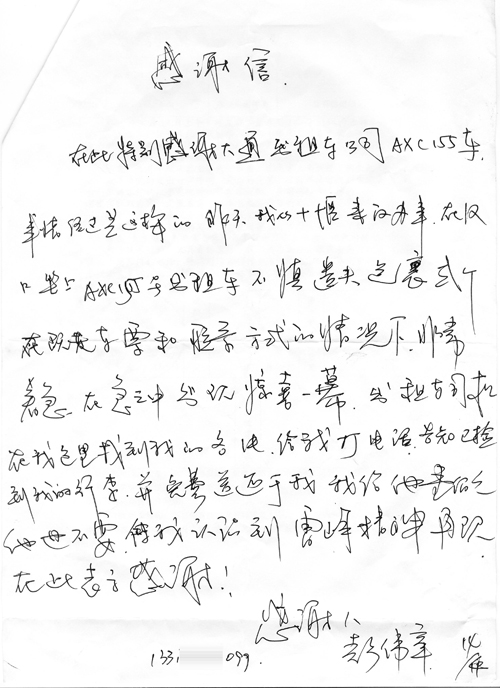 感谢信.
在此特别感谢大通出租车公司AXC155车.
事情经过是这样的昨天我从十堰来汉办事.在汉
口坐上AXC155号出租车不慎遗失包裹式个
在既无车票和联系方式的情况下.非常
着急.在急之中出现惊喜一幕.出租车司机
在我包里找到我的名片.给我打电话.告知已检
到我的行李.并完整送还于我我给他
他也不要使我认识到雷峰精神再现.
在此表示感谢!
感谢人
彭伟章
133 099.